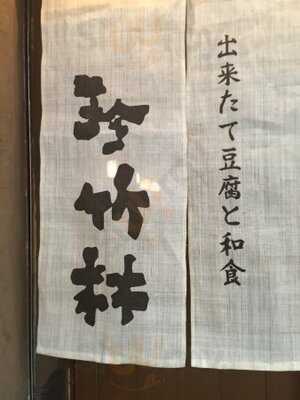 出来たて豆腐と和食
珍竹林